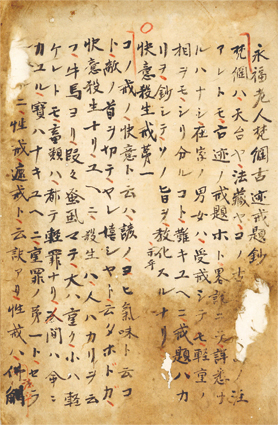 永福老人梵網古迹戒題鈔
梵網ハ天台ヤ法藏ヤコノ古ノ注
アレトモ古迹ノ戒題ホト畧シテ詳悉ナ
ルハナシ在家ノ男女ハ受戒シテモ輕重ノ
相ヲモシリ分ルコト難キユヘニ戒題ハカ
リヲ鈔シテソノ旨ヲ教化スルナリ
快意殺生戒第一
コノ戒ノ快意ト云ハ諺ノヨヒ氣味ト云コ
ト敵ノ首ヲ切テヤレ嬉シヤト云タホトカ
快意殺生ナリユヘニ殺生ハ人ハカリヲ云
フ牛馬ヨリ段々蚤虱マテ大ハ重ク小ハ軽
ケレトモ畜類ハ都テ軽罪ナリ人間ハ命ニ
カユル寶ハナキユヘニ重罪ノ第一トセリ
ニ性戒遮戒ト云訳アリ性戒ハ